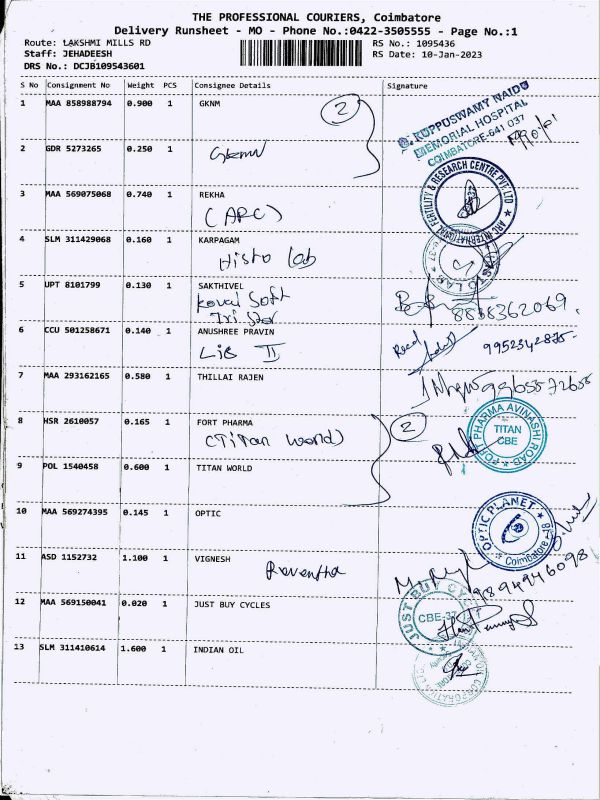 THE PROFESSIONAL COURIERS, Coimbatore
Delivery Runsheet - MO - Phone No.:0422-3505555 - Page No.:1
Route: LAKSHMI MILLS RD RS No.: 1095436
Staff: JEHADEESH RS Date: 10-Jan-2023
DRS No.: DCJB109543601
S No Consignment No Weight PCS Consignee Details Signature
1 MAA 858988794 0.900 1 GKNM
2
G. KUPPUSWAMY NAIDU
MEMORIAL HOSPITAL
COIMBATORE-641 037
2 GDR 5273265 0.250 1
GKNM
3 MAA 569075068 0.740 1 REKHA
(ARC)
ARC INTERNATIONAL FERTILITY & RESEARCH CENTRE PVT LTD
4 SLM 311429068 0.160 1 KARPAGAM
Histo lab
HISTO LAB
5 UPT 8101799 0.130 1 SAKTHIVEL
Kovai Soft
Tri Star
8838362069
6 CCU 501258671 0.140 1 ANUSHREE PRAVIN
LIB II
9952342875
7 MAA 293162165 0.580 1 THILLAI RAJEN
8 HSR 2610057 0.165 1 FORT PHARMA
(Titan World)
2
FORT PHARMA AVINASHI ROAD
TITAN
CBE
9 POL 1540458 0.600 1 TITAN WORLD
10 MAA 569274395 0.145 1 OPTIC
OPTIC PLANET
Coimbatore-18
11 ASD 1152732 1.100 1 VIGNESH
9894946098
12 MAA 569150041 0.020 1 JUST BUY CYCLES
JUST BUY CYCLES
CBE-37
13 SLM 311410614 1.600 1 INDIAN OIL